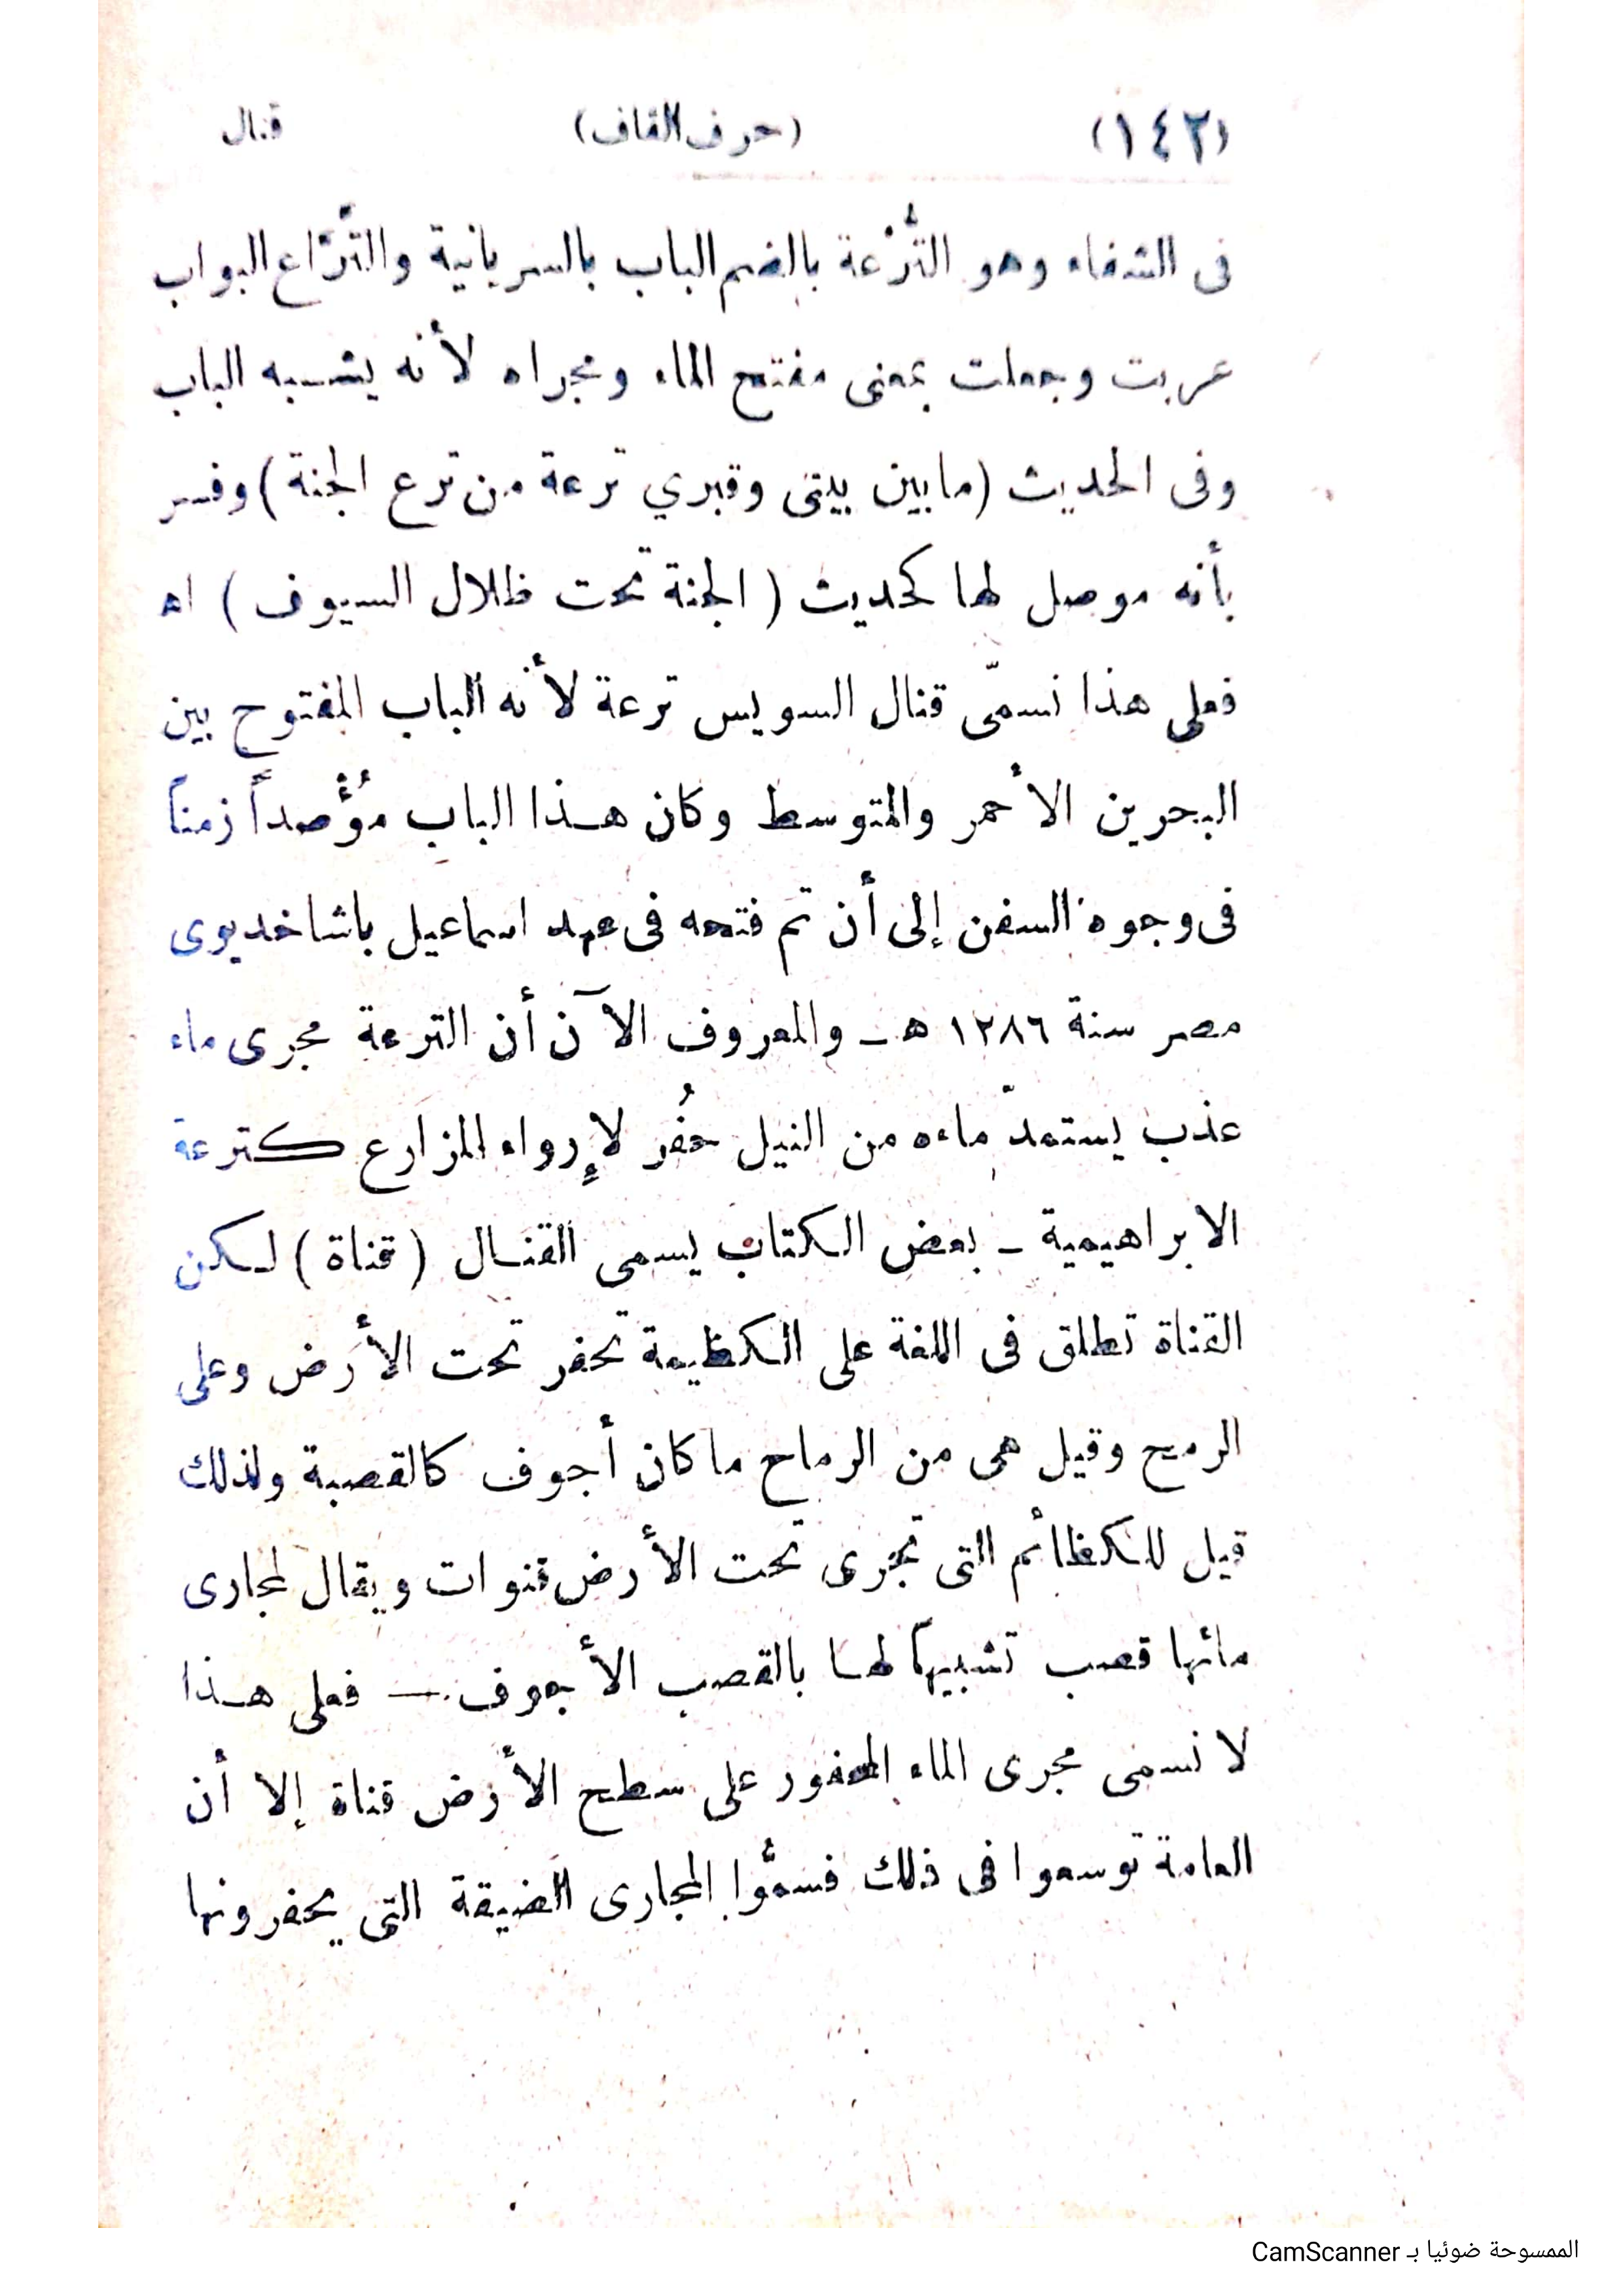 (١٤٢) (حرف القاف) قنال
فى الشفاء وهو التُّرْعة بالضم الباب بالسريانية والتَّرَّاع البواب
عربت وجعلت بمعنى مفتح الماء ومجراه لأنه يشبه الباب
وفى الحديث (ما بين بيتى وقبري ترعة من ترع الجنة) وفسر
بأنه موصل لها كحديث (الجنة تحت ظلال السيوف) اه
فعلى هذا نسمّى قنال السويس ترعة لأنه الباب المفتوح بين
البحرين الأحمر والمتوسط وكان هذا الباب مُؤْصداً زمناً
فى وجوه السفن إلى أن تم فتحه فى عهد اسماعيل باشا خديوى
مصر سنة ١٢٨٦ هـ – والمعروف الآن أن الترعة مجرى ماء
عذب يستمدّ ماءه من النيل حفُر لإرواء المزارع كترعة
الابراهيمية – بعض الكتاب يسمى القنال (قناة) لكن
القناة تطلق فى اللغة على الكظيمة تحفر تحت الأرض وعلى
الرمح وقيل هى من الرماح ما كان أجوف كالقصبة ولذلك
قيل للكظائم التى تجرى تحت الأرض قنوات ويقال لمجارى
مائها قصب تشبيهاً لها بالقصب الأجوف — فعلى هذا
لا نسمى مجرى الماء المحفور على سطح الأرض قناة إلا أن
العامة توسعوا فى ذلك فسمَّوا المجارى الضيقة التى يحفرونها
الممسوحة ضوئيا بـ CamScanner